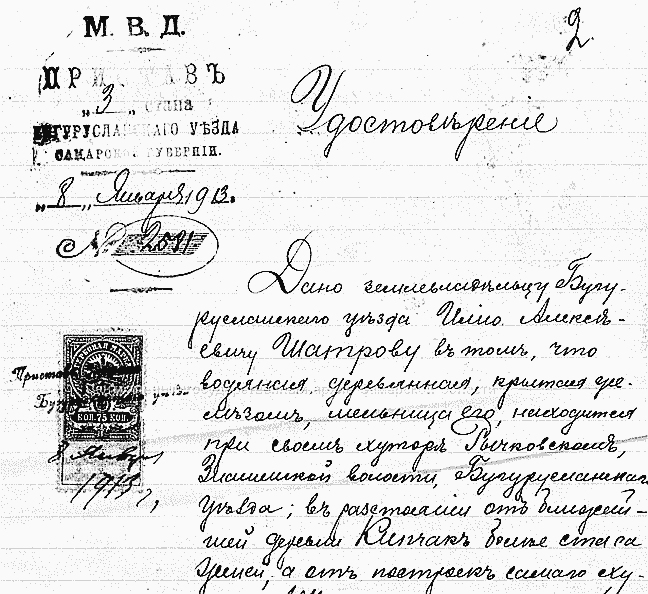 2
М. В. Д.
ПРИСТАВЪ
„ 3 „ стана
БУГУРУСЛАНСКАГО УѢЗДА
САМАРСКОЙ ГУБЕРНІИ.
„ 8 „ Января 1913.
№ 2591
Удостовѣреніе
Дано землевладѣльцу Бугу-
русланскаго уѣзда Алексѣ-
евичу Шатрову въ томъ, что
водяная деревянная, крытая же-
лѣзомъ, мельница его, находится
при своемъ хуторѣ Рычковскомъ,
волости, Бугурусланскаго
уѣзда; въ разстояніи отъ ближай-
шей деревни Кипчакъ болѣе ста са
женей, а отъ построекъ самаго ху-
Приставъ
8 Января
1913 г,